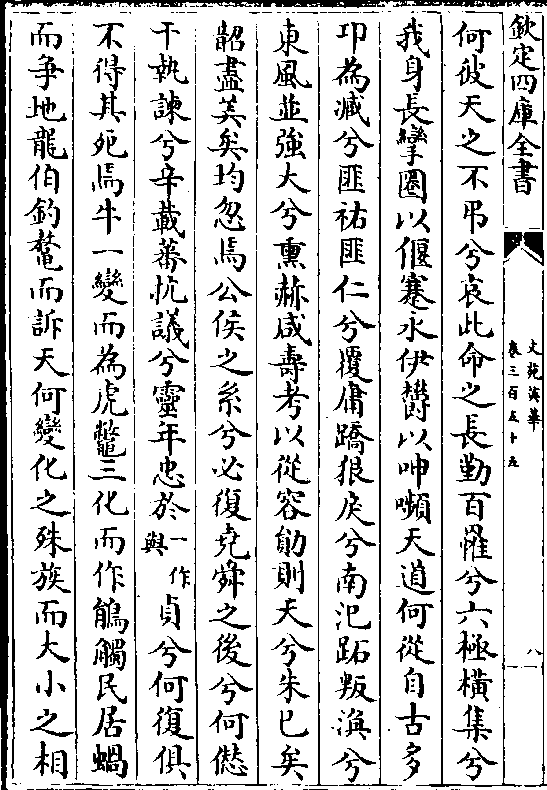 欽定四庫全書
文苑英華
卷三百五十五
八
何彼天之不弔兮哀此命之長勤百罹兮六極橫集兮
我身長攣圈以偃蹇永伊鬱以呻嚬天道何從自古多
卭為臧兮匪祐匪仁兮覆庸蹻狠戾兮南汜跖叛溟兮
東風並強大兮熏赫咸壽考以從容勛則天兮朱已矣
韶盡美矣均忽焉公侯之系兮必復堯舜之後兮何愆
干執諫兮辛菹蕃忼議兮靈年忠於一作與貞兮何復俱
不得其死焉牛一變而為虎鼈三化而作鵩觸民居蝸
而爭地龍伯釣鼇而訴天何變化之殊族而大小之相